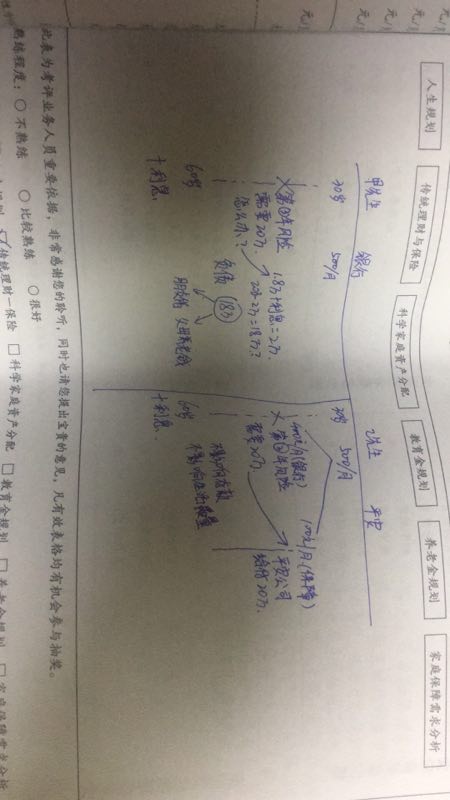 人生规划
传统理财与保险
科学家庭资产分配
教育金规划
养老金规划
家庭保障需求分析
甲先生 银行
30岁 500/月
第3年风险
需要20万
怎么办?
1.8万+利息=2万
20万-2万=18万?
负债 18万
朋友借 父母养老钱
60岁
+利息
乙先生 平安
30岁 500/月
400元/月(银行)
100元/月(保障)
第3年风险
需要20万
平安公司
给付20万
不影响存款
不影响生活质量
60岁
+利息
此表为考评业务人员重要依据,非常感谢您的聆听,同时也请您提出宝贵的意见,凡有效表格均有机会参与抽奖。
熟练程度:○ 不熟练 ○ 比较熟练 ○ 很好
传统理财—保险 □ 科学家庭资产分配 □ 教育金规划 □ 养老金规划 □ 家庭保障需求分析